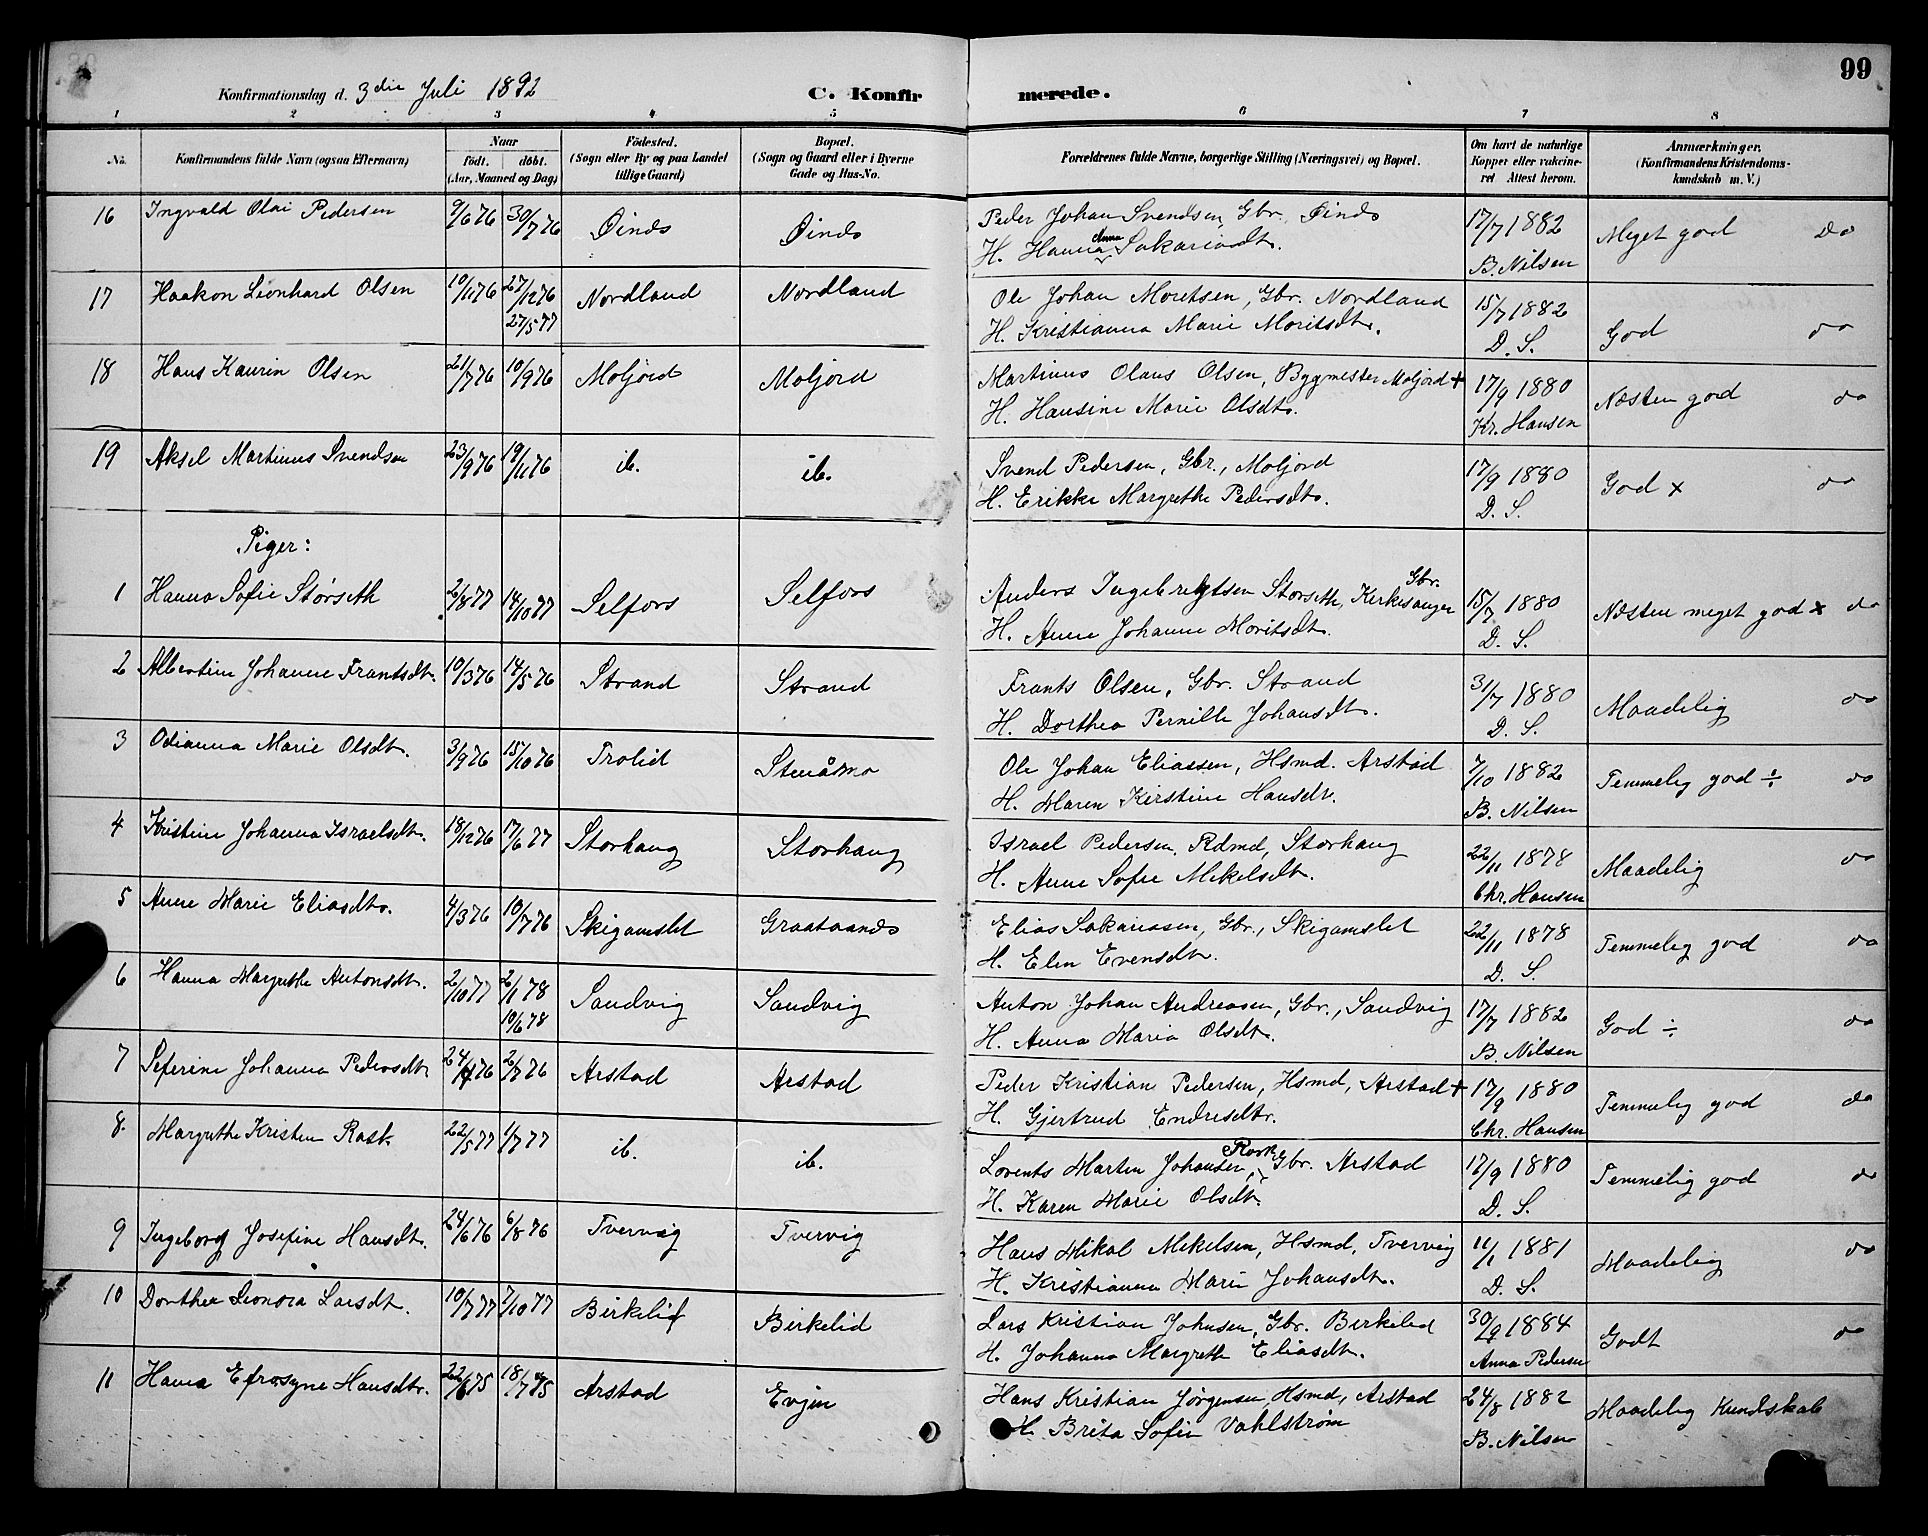 99
Konfirmationsdag d. 3die Juli 1892 C. Konfirmerede.
1 2 3 4 5 6 7 8
No. Konfirmandens fulde Navn (ogsaa Efternavn) Naar født. døbt. (Aar, Maaned og Dag) Fødested. (Sogn eller By og paa Landet tillige Gaard) Bopæl. (Sogn og Gaard eller i Byerne Gade og Hus-No. Forældrenes fulde Navne, borgerlige Stilling (Næringsvei) og Bopæl. Om havt de naturlige Kopper eller vaksineret Attest herom. Anmærkninger. (Konfirmandens Kristendomskundskab m. V.)
16 Ingvald Olai Pedersen 9/6 76 30/7 76 Øinds Øinds Peder Johan Svendsen, Gbr, Øinds 17/7 1882 Meget god do
H. Hanna Anna Sakariasdt. B. Nilsen
17 Haakon Leonhard Olsen 10/11 76 27/12 76 Nordland Nordland Ole Johan Moretsen, Gbr. Nordland 15/7 1882 God do
27/5 77 H. Kristianna Marie Moritsdtr. D. S.
18 Hans Kaurin Olsen 21/7 76 10/9 76 Moljord Moljord Martinus Olaus Olsen, Bygmester Moljord + 17/9 1880 Næsten god do
H. Hansine Marie Olsdtr. Kr. Hansen
19 Aksel Martinus Svendsen 23/9 76 19/11 76 ib. ib. Svend Pedersen, Gbr., Moljord 17/9 1880 God x do
H. Erikke Margrethe Pedersdtr. D. S.
Piger:
1 Hanna Sofie Størseth 2/8 77 14/10 77 Selfors Selfors Anders Ingebrigtsen Storseth, Kirkesanger Gbr. 15/7 1880 Næsten meget god x do
H. Anne Johanne Moritsdt. D. S.
2 Albertine Johanne Frantsdtr. 10/3 76 14/5 76 Strand Strand Frants Olsen, Gbr. Strand 31/7 1880 Maadelig do
H. Dorthea Pernille Johansdtr. D. S.
3 Odianna Marie Olsdt. 3/9 76 15/10 76 Trolid Stenåmo Ole Johan Eliassen, Hsmd. Arstad 7/10 1882 Temmelig god ÷ do
H. Maren Kirstine Hansdt. B. Nilsen
4 Kristine Johanna Israelsdt. 18/12 76 17/6 77 Storhaug Storhaug Israel Pedersen, Rdmd, Storhaug 22/11 1878 Maadelig do
H. Anne Sofie Mikelsdt. Chr. Hansen
5 Anne Marie Eliasdtr. 4/3 76 10/7 76 Skigamslet Graataands Elias Sakariasen, Gbr., Skigamslet 22/11 1878 Temmelig god do
H. Elen Evensdtr. D. S.
6 Hanna Margrethe Antonsdt. 2/10 77 2/1 78 Sandvig Sandvig Anton Johan Andreasen, Gbr., Sandvig 17/7 1882 God ÷ do
10/6 78 H. Anna Maria Olsdt. B. Nilsen
7 Seferine Johanna Pedersdt. 24/4 76 2/7 76 Arstad Arstad Peder Kristian Pedersen, Hsmd, Arstad + 17/9 1880 Temmelig god do
H. Gjertrud Endresdtr. Chr. Hansen
8. Margrethe Kristen Rask. 22/5 77 1/7 77 ib. ib. Lorents Martin Johansen, Rask, Gbr. Arstad 17/9 1880 Temmelig god do
H. Karen Marie Olsdt. D. S.
9 Ingeborg Josefine Hansdt. 24/6 76 6/8 76 Tvervig Tvervig Hans Mikal Mikelsen, Hsmd, Tvervig 11/1 1881 Maadelig do
H. Kristianna Marie Johansdt. D. S.
10 Dorthea Leonora Larsdt. 10/7 77 7/10 77 Birkelid Birkelid Lars Kristian Johnsen, Gbr. Birkelid 30/9 1884 Godt do
H. Johanna Margrethe Eliasdt. Anna Pedersen
11 Hanna Efrosyne Hansdtr. 22/6 75 18/7 75 Arstad Evjen Hans Kristian Jørgensen, Hsmd, Arstad 24/8 1882 Maadelig Kundskab
H. Brita Sofie Vahlstrøm B. Nilsen